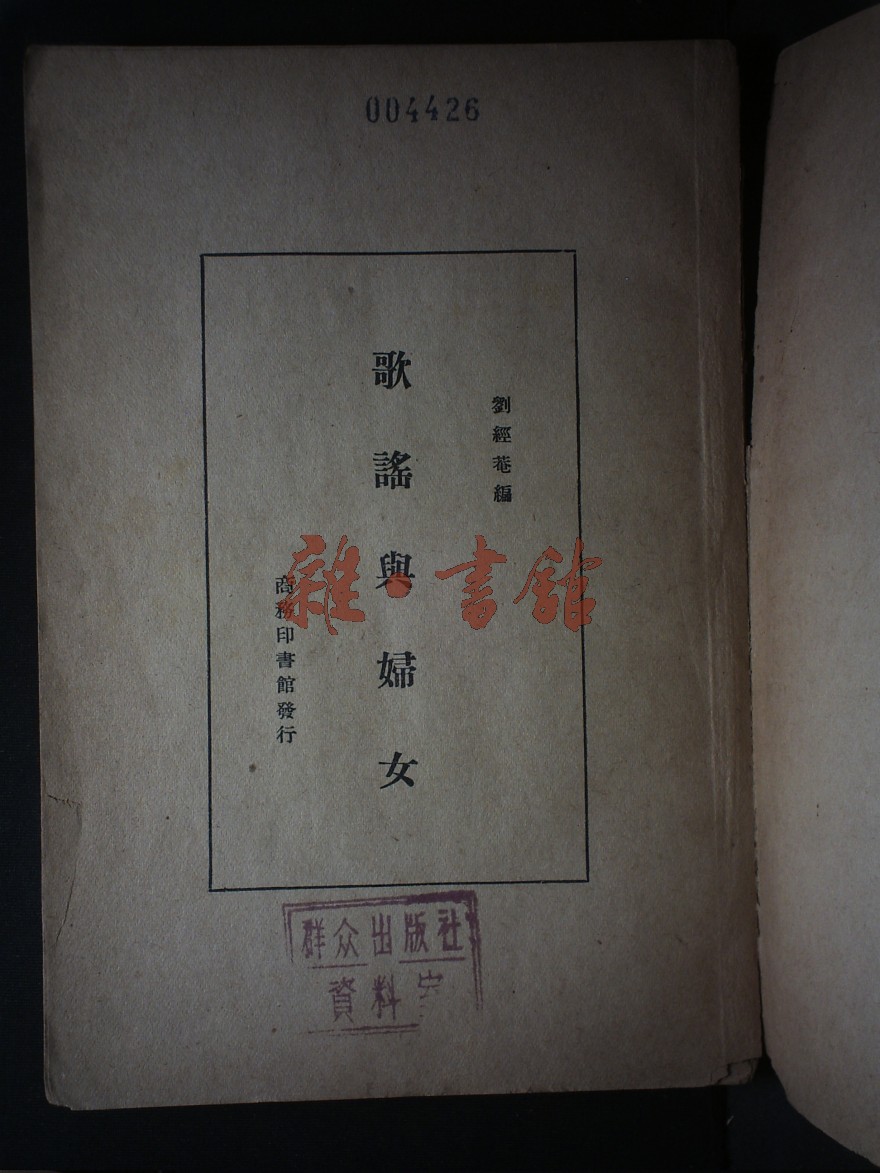 004426
劉經菴編
歌謠與婦女
商務印書館發行
雜·書館
群众出版社
資料室